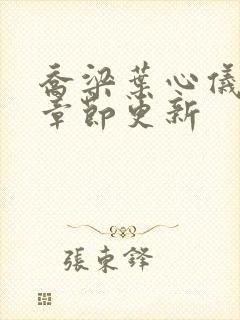 喬梁葉心儀
章節更新
張東鋒